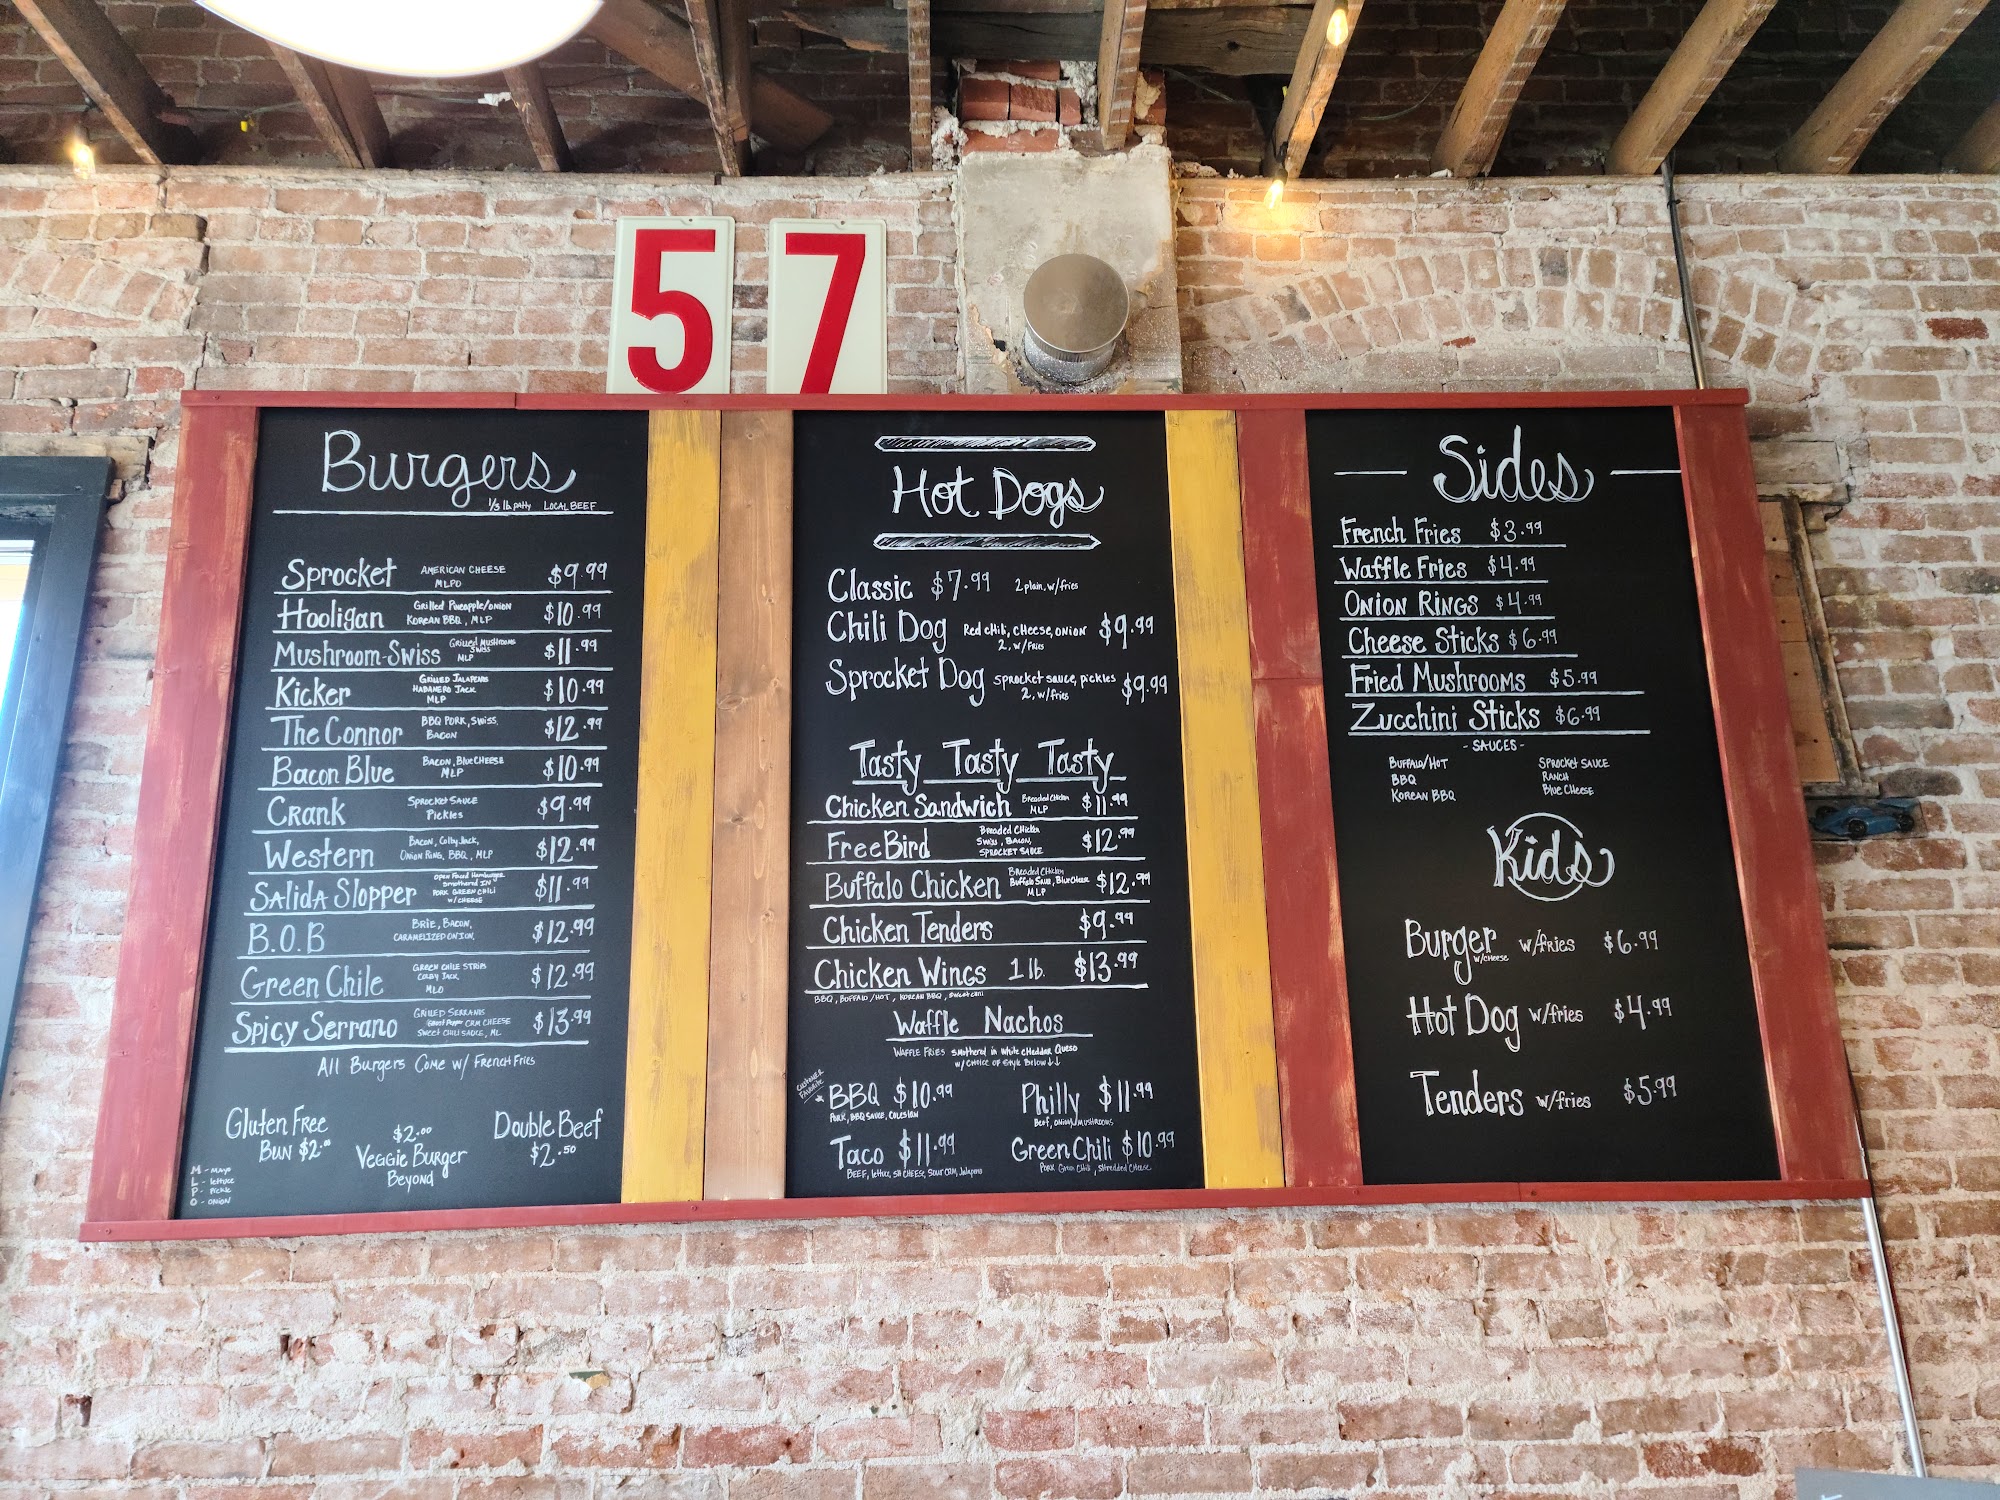 57
Burgers
1/3 lb. patty LOCAL BEEF
Sprocket AMERICAN CHEESE $9.99
MLPO
Hooligan Grilled Pineapple/onion $10.99
KOREAN BBQ, MLP
Mushroom-Swiss Grilled Mushrooms $11.99
Swiss
MLP
Kicker GRILLED JALAPENOS $10.99
HABANERO JACK
MLP
The Connor BBQ PORK, SWISS, $12.99
BACON
Bacon Blue BACON, BLUE CHEESE $10.99
MLP
Crank SPROCKET SAUCE $9.99
PICKLES
Western BACON, Colby Jack, $12.99
ONION RING, BBQ, MLP
SALIDA SLOPPER OPEN FACED Hamburger $11.99
Smothered IN
PORK GREEN CHILI
W/CHEESE
B.O.B BRIE, BACON, $12.99
CARAMELIZED ONION,
Green Chile GREEN CHILE STRIPS $12.99
COLBY JACK
MLO
Spicy Serrano GRILLED SERRANOS $13.99
Ghost Pepper CRM CHEESE
SWEET CHILI SAUCE, ML
All Burgers Come w/ French Fries
Gluten Free
Bun $2.00
$2.00
Veggie Burger
Beyond
Double Beef
$2.50
M - MAYO
L - lettuce
P - Pickle
O - ONION
Hot Dogs
Classic $7.99 2 plain, w/fries
Chili Dog Red chili, cheese, onion $9.99
2, w/fries
Sprocket Dog sprocket sauce, pickles $9.99
2, w/fries
Tasty Tasty Tasty
Chicken Sandwich Breaded Chicken $11.99
MLP
FreeBird Breaded Chicken $12.99
Swiss, BACON,
SPROCKET SAUCE
Buffalo Chicken Breaded Chicken $12.99
Buffalo Sauce, Blue Cheese
MLP
Chicken Tenders $9.99
Chicken Wings 1 lb. $13.99
BBQ, BUFFALO/HOT, KOREAN BBQ,
Waffle Nachos
WAFFLE FRIES smothered in white cheddar Queso
w/ choice of style Below ↓↓
CUSTOMER
FAVORITE
BBQ $10.99
PORK, BBQ SAUCE, COLESLAW
Philly $11.99
Beef, onions, mushrooms
Taco $11.99
BEEF, lettuce, SH CHEESE, SOUR CRM, Jalapeno
Green Chili $10.99
PORK Green Chili, shredded cheese
Sides
French Fries $3.99
Waffle Fries $4.99
Onion Rings $4.99
Cheese Sticks $6.99
Fried Mushrooms $5.99
Zucchini Sticks $6.99
- SAUCES -
BUFFALO/HOT
BBQ
KOREAN BBQ
SPROCKET SAUCE
RANCH
BLUE CHEESE
Kids
Burger w/fries $6.99
w/cheese
Hot Dog w/fries $4.99
Tenders w/fries $5.99